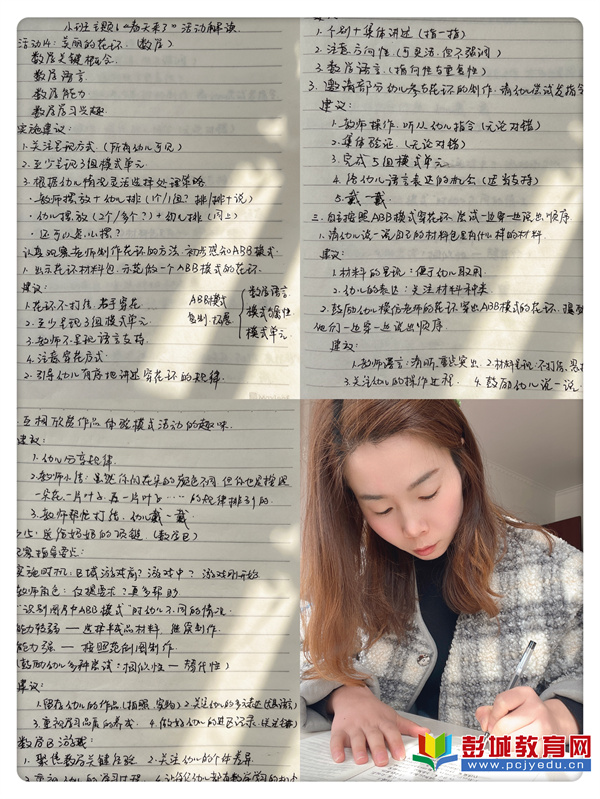 小班主题6《春天来了》活动解读
活动14：美丽的花环（数A）
数学关键概念
数学语言
数学能力
数学学习兴趣
实施建议：
1.关注呈现方式（所有幼儿可见）
2.至少呈现3组模式单元
3.根据幼儿情况灵活选择处理策略
·教师摆放+幼儿排（个/1组？排/排+说）
·幼儿摆放（2个/多个？）+幼儿排（同上）
·还可以怎么摆？
认真观察老师制作花环的方法，初步感知ABB模式
1.出示花环材料包，示范做一个ABB模式的花环
建议：
1.花环不打结，易于穿花
2.至少呈现3组模式单元
3.教师不呈现语言支持
4.注意穿花方式
2.引导幼儿有序地讲述穿花环的规律
ABB模式
复制、拓展
数学语言
模式的属性
模式单元
1.个别+集体讲述（指一指）
2.注意方向性（可灵活，但不强调）
3.数学语言（指向性与重复性）
3.邀请部分幼儿参与花环的制作，请幼儿尝试发指令
建议：
1.教师操作，听从幼儿指令（无论对错）
2.集体验证（无论对错）
3.完成5组模式单元
4.给幼儿语言表达的机会（适当支持）
5.戴一戴
三.自主按照ABB模式穿花环，尝试一边穿一边说出顺序
1.请幼儿说一说自己的材料包里有什么样的材料
建议：
1.材料的呈现：便于幼儿取用
2.幼儿的表达：关注材料种类
2.鼓励幼儿模仿老师的花环，穿出ABB模式的花环，
他们一边穿一边说出顺序
建议：
1.教师语言：清晰、重点突出 2.材料呈现：不打结、
3.关注幼儿的操作过程 4.鼓励幼儿说一说
互相欣赏作品，体验模式活动的趣味
建议：
1.幼儿分享规律
2.教师小结：虽然你们花朵的颜色不同，但你也是按照
一朵花一片叶子，再一片叶子……的规律排列的
3.教师帮忙打结，幼儿戴一戴
15：送给妈妈的项链（数学B）
观察指导要点：
实施时机：B域游戏前？游戏中？游戏刚开始
教师角色：仅提要求？更多帮助
“识别图片中ABB模式”时幼儿不同的情况
能力较弱——选择半成品材料，继续制作
能力强——按照范例图制作
（鼓励幼儿多种尝试：相似性——替代性）
建议：
1.留存幼儿的作品（拍照、实物） 2.关注幼儿的多方表达
3.重视学习品质的养成 4.做好幼儿的进区记录
数学B游戏：
1.聚焦数学关键经验 2.关注幼儿的个体差异
彭城教育网
www.pcjyedu.cn